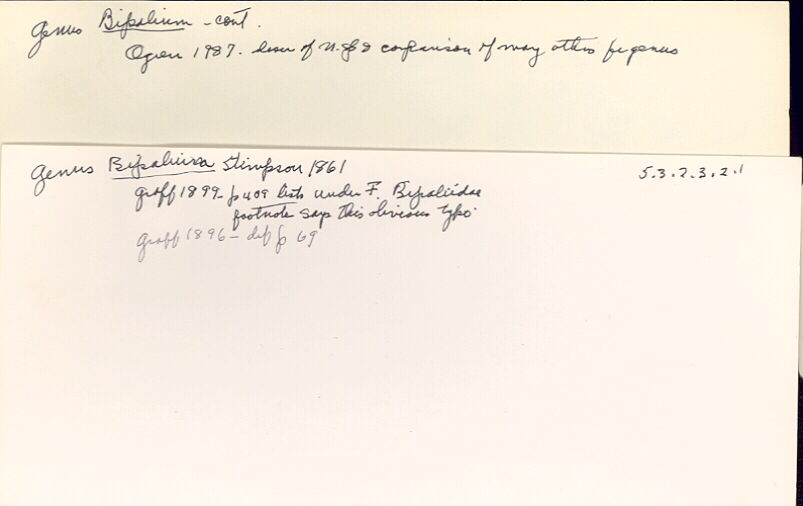 Genus Bipalium - cont.
Ogren 1987. of n. g & comparison of many others for genus
Genus Bipaliura Stimpson 1861 5.3.2.3.2.1
Graff 1899 - p 409 lists under F. Bipaliidae
footnote says this obvious typo.
Graff 1896 - def p 69